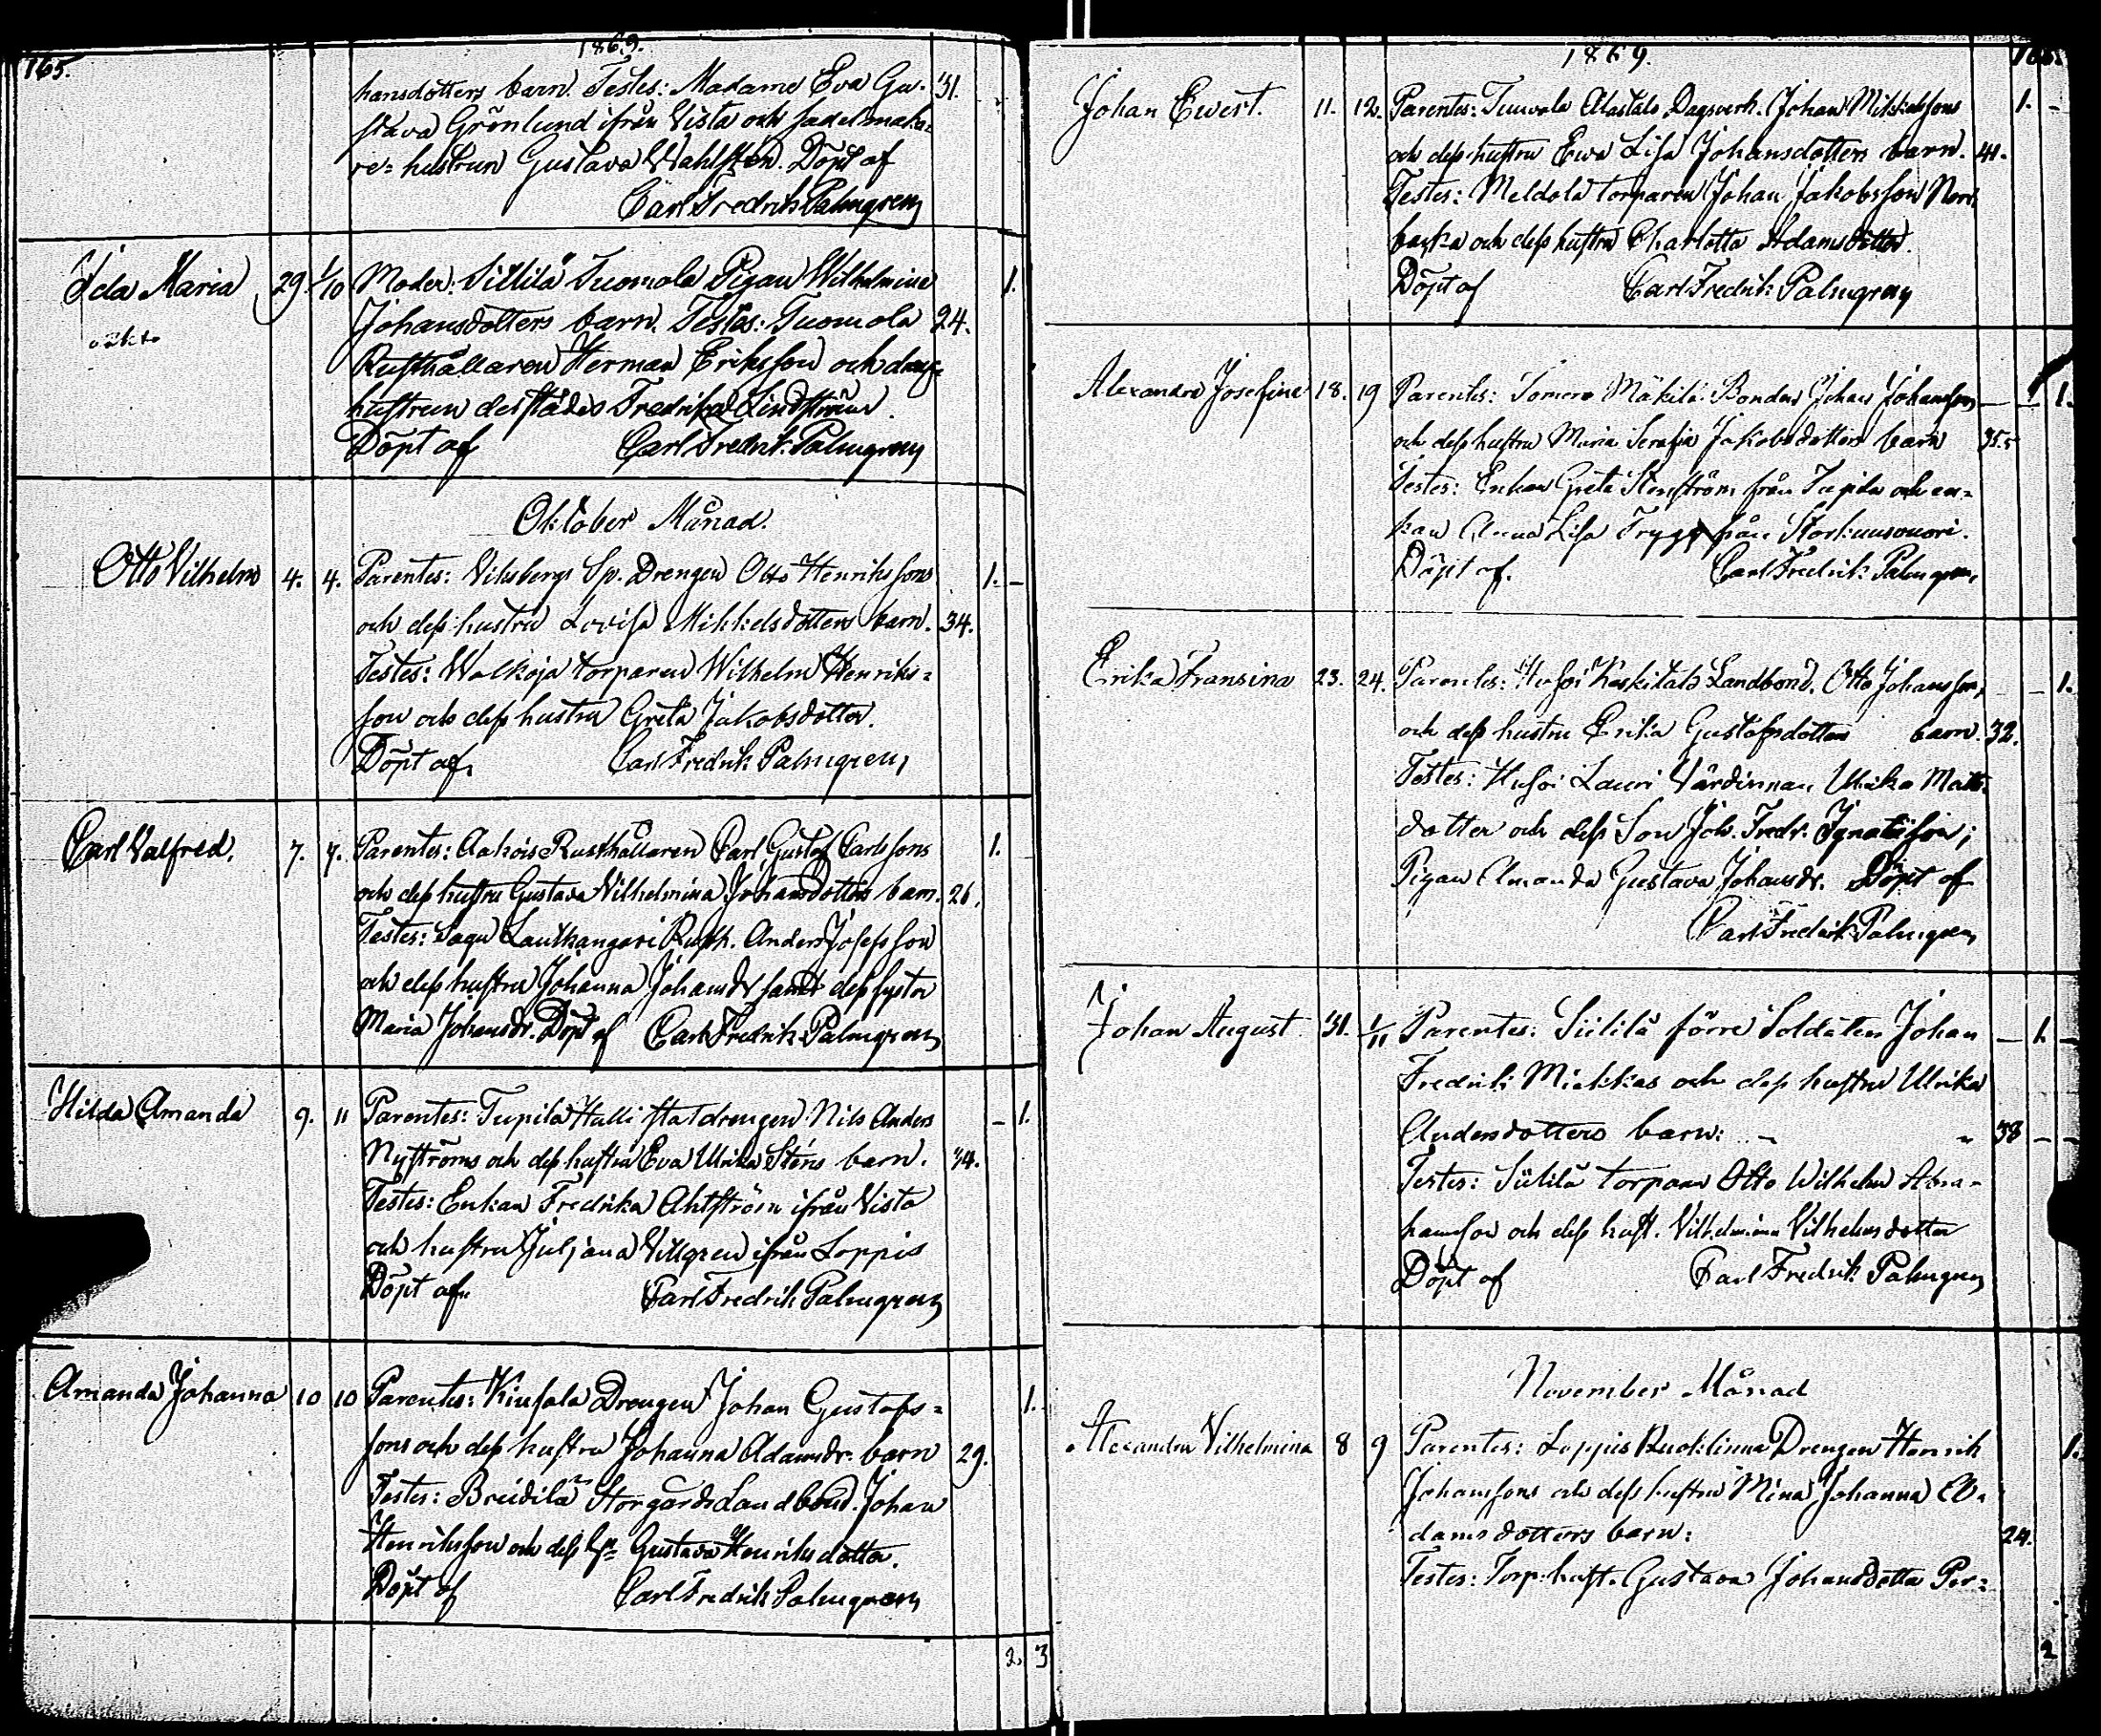 165. 1869.
hansdotters barn. Testes: Madame Eva Gu- 31.
stava Grönlund ifrån Vista och sadelmaka-
re-hustrun Gustava Wahlstén. Döpt af
Carl Fredrik Palmgren
Ida Maria 29. 1/10 Moder: Sillilä Tuomola Pigan Wilhelmina 1.
oäkta Johansdotters barn. Testes: Tuomola 24.
Rusthållaren Herman Eriksson och
hustrun derstädes Fredrika Lindström.
Döpt af Carl Fredrik Palmgren
Oktober Månad.
Otto Vilhelm 4. 4. Parentes: Viksbergs Sp. Drengen Otto Henrikssons 1. -
och dess hustru Lovisa Mikkelsdotters barn. 34.
Testes: Walkoja torparen Wilhelm Henriks-
son och dess hustru Greta Jakobsdotter.
Döpt af Carl Fredrik Palmgren
Carl Valfred. 7. 7. Parentes: Aakois Rusthållaren Carl Gustaf Carlssons 1.
och dess hustru Gustava Vilhelmina Johansdotters barn. 26.
Testes: Sagu Lauthangari Rusth. Anders Josefsson
och dess hustru Johanna Johansdr samt dess syster
Maria Johansdr. Döpt af Carl Fredrik Palmgren
Hilda Amanda 9. 11 Parentes: Tupila Halli statdrengen Nils Anders - 1.
Nyströms och dess hustru Eva Ulrika Sténs barn. 34.
Testes: Enkan Fredrika Ahlström ifrån Vista
och hustru Juljana Villgren ifrån Loppis
Döpt af Carl Fredrik Palmgren
Amanda Johanna 10 10 Parentes: Kiusala Drengen Johan Gustafs- 1.
sons och dess hustru Johanna Adamsdr. barn 29.
Testes: Breidilä Storgårds Landbond. Johan
Henriksson och dess Gustava Henriksdotter.
Döpt af Carl Fredrik Palmgren
2. 3
1869.
Johan Ewert. 11. 12. Parentes: Tuuvola Alastalo Dagsverk. Johan Mikkelssons 1. -
och dess hustru Ewa Lisa Johansdotters barn. 41.
Testes: Meldola torparen Johan Jakobsson
backa och dess hustru Charlotta Adamsdotter.
Döpt af Carl Fredrik Palmgren
Alexandra Josefina 18. 19 Parentes: Somero Mäkilä Bonden Johan Johansson - - 1.
och dess hustru Maria Serafia Jakobsdotters barn 35.
Testes: Enkan Greta Stenström från Tupila och en-
kan Anna Lisa Trygg från
Döpt af. Carl Fredrik Palmgren
Erika Fransina 23. 24. Parentes: Hirsjoi Keskitalo Landbond. Otto Johansson, - 1.
och dess hustru Erika Gustafsdotters barn. 32.
Testes: Lauri Värdinnan Ulrika Matts-
dotter och dess Son Joh. Fredr. Ignatiison;
Pigan Amanda Gustava Johansdr. Döpt af
Carl Fredrik Palmgren
Johan August 31. 1/11 Parentes: Siililä förre Soldaten Johan - 1. -
Fredrik Miekkas och dess hustru Ulrika
Andersdotters barn: 38 - -
Testes: Siililä torparen Otto Wilhelm Abra-
hamson och dess hust. Vilhelmina Vilhelmsdotter
Döpt af Carl Fredrik Palmgren
November Månad
Alexandra Vilhelmina 8 9 Parentes: Loppis Drengen Henrik 1.
Johanssons och dess hustru Mina Johanna A-
damsdotters barn: 24.
Testes: Torp. hust. Gustava Johansdotter Per-
2